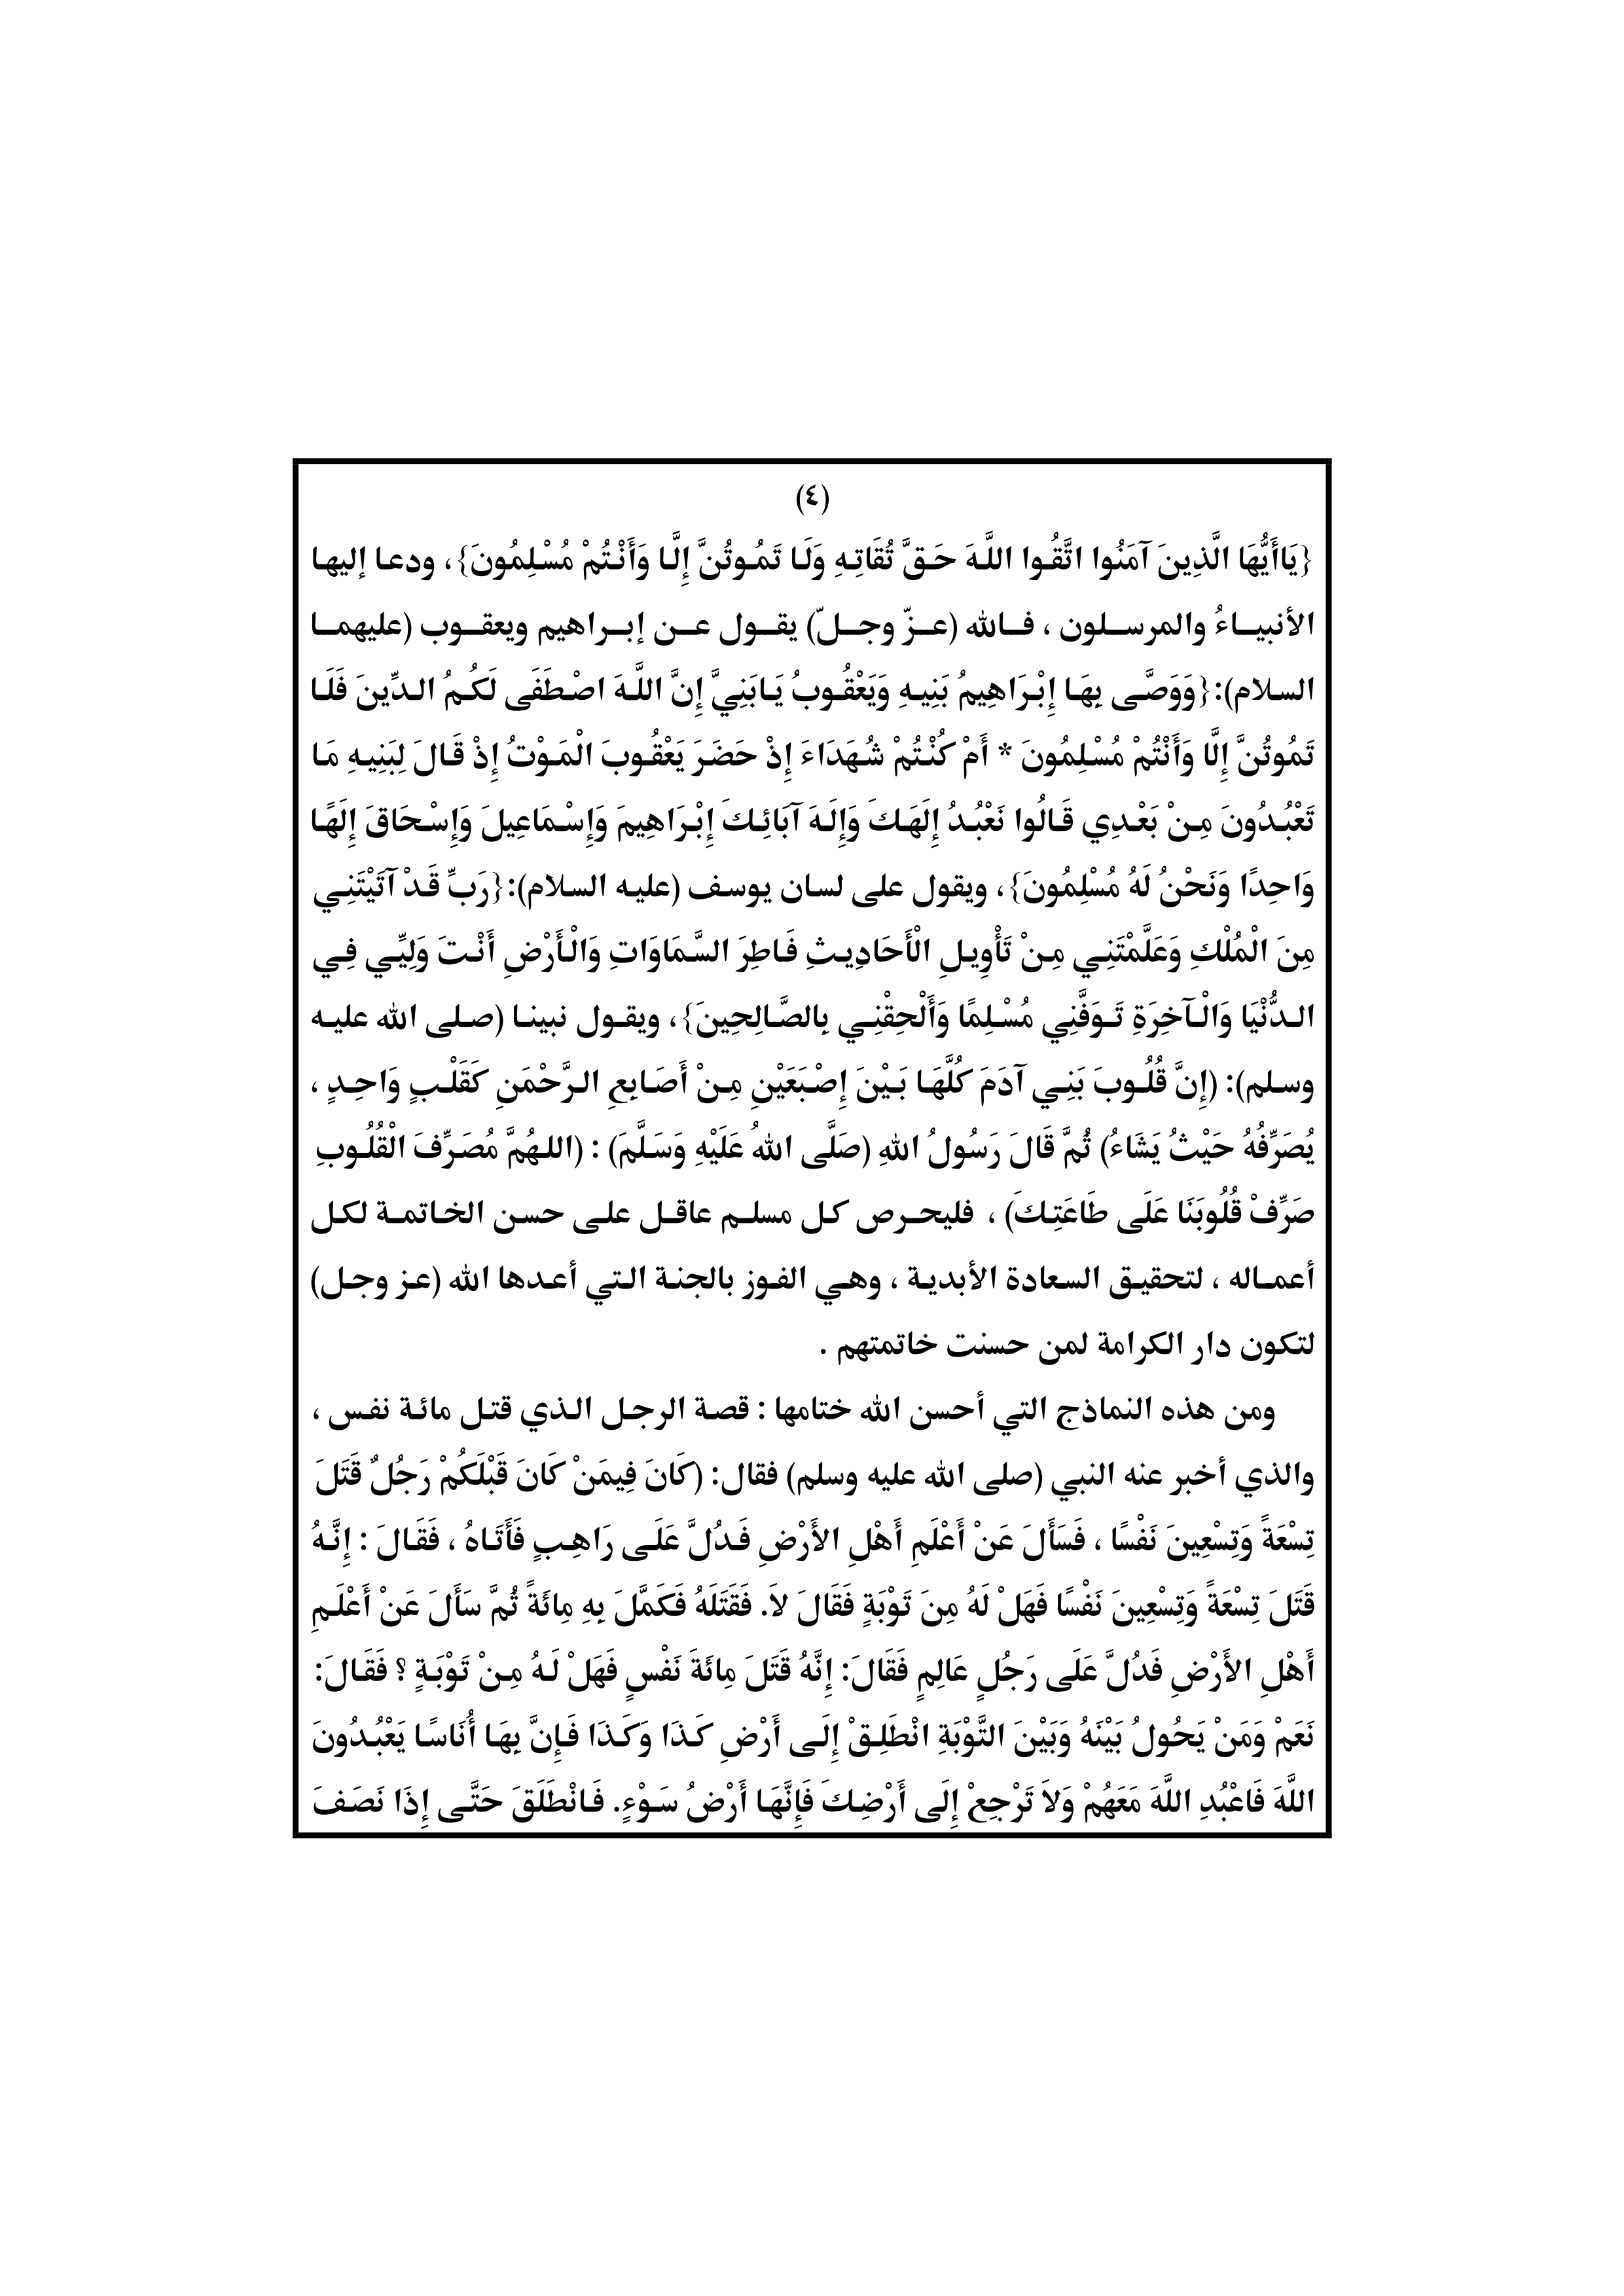 (٤)
{يَاأَيُّهَا الَّذِينَ آمَنُوا اتَّقُوا اللَّهَ حَقَّ تُقَاتِهِ وَلَا تَمُوتُنَّ إِلَّا وَأَنْتُمْ مُسْلِمُونَ}، ودعا إليها
الأنبياءُ والمرسلون ، فالله (عزّ وجلّ) يقول عن إبراهيم ويعقوب (عليهما
السلام):{وَوَصَّى بِهَا إِبْرَاهِيمُ بَنِيهِ وَيَعْقُوبُ يَابَنِيَّ إِنَّ اللَّهَ اصْطَفَى لَكُمُ الدِّينَ فَلَا
تَمُوتُنَّ إِلَّا وَأَنْتُمْ مُسْلِمُونَ * أَمْ كُنْتُمْ شُهَدَاءَ إِذْ حَضَرَ يَعْقُوبَ الْمَوْتُ إِذْ قَالَ لِبَنِيهِ مَا
تَعْبُدُونَ مِنْ بَعْدِي قَالُوا نَعْبُدُ إِلَهَكَ وَإِلَهَ آبَائِكَ إِبْرَاهِيمَ وَإِسْمَاعِيلَ وَإِسْحَاقَ إِلَهًا
وَاحِدًا وَنَحْنُ لَهُ مُسْلِمُونَ}، ويقول على لسان يوسف (عليه السلام):{رَبِّ قَدْ آتَيْتَنِي
مِنَ الْمُلْكِ وَعَلَّمْتَنِي مِنْ تَأْوِيلِ الْأَحَادِيثِ فَاطِرَ السَّمَاوَاتِ وَالْأَرْضِ أَنْتَ وَلِيِّي فِي
الدُّنْيَا وَالْآخِرَةِ تَوَفَّنِي مُسْلِمًا وَأَلْحِقْنِي بِالصَّالِحِينَ}، ويقول نبينا (صلى الله عليه
وسلم): (إِنَّ قُلُوبَ بَنِي آدَمَ كُلَّهَا بَيْنَ إِصْبَعَيْنِ مِنْ أَصَابِعِ الرَّحْمَنِ كَقَلْبٍ وَاحِدٍ ،
يُصَرِّفُهُ حَيْثُ يَشَاءُ) ثُمَّ قَالَ رَسُولُ اللهِ (صَلَّى اللهُ عَلَيْهِ وَسَلَّمَ) : (اللهُمَّ مُصَرِّفَ الْقُلُوبِ
صَرِّفْ قُلُوبَنَا عَلَى طَاعَتِكَ) ، فليحرص كل مسلم عاقل على حسن الخاتمة لكل
أعماله ، لتحقيق السعادة الأبدية ، وهي الفوز بالجنة التي أعدها الله (عز وجل)
لتكون دار الكرامة لمن حسنت خاتمتهم .
ومن هذه النماذج التي أحسن الله ختامها : قصة الرجل الذي قتل مائة نفس ،
والذي أخبر عنه النبي (صلى الله عليه وسلم) فقال: (كَانَ فِيمَنْ كَانَ قَبْلَكُمْ رَجُلٌ قَتَلَ
تِسْعَةً وَتِسْعِينَ نَفْسًا ، فَسَأَلَ عَنْ أَعْلَمِ أَهْلِ الأَرْضِ فَدُلَّ عَلَى رَاهِبٍ فَأَتَاهُ ، فَقَالَ : إِنَّهُ
قَتَلَ تِسْعَةً وَتِسْعِينَ نَفْسًا فَهَلْ لَهُ مِنَ تَوْبَةٍ فَقَالَ لاَ. فَقَتَلَهُ فَكَمَّلَ بِهِ مِائَةً ثُمَّ سَأَلَ عَنْ أَعْلَمِ
أَهْلِ الأَرْضِ فَدُلَّ عَلَى رَجُلٍ عَالِمٍ فَقَالَ: إِنَّهُ قَتَلَ مِائَةَ نَفْسٍ فَهَلْ لَهُ مِنْ تَوْبَةٍ ؟ فَقَالَ:
نَعَمْ وَمَنْ يَحُولُ بَيْنَهُ وَبَيْنَ التَّوْبَةِ انْطَلِقْ إِلَى أَرْضِ كَذَا وَكَذَا فَإِنَّ بِهَا أُنَاسًا يَعْبُدُونَ
اللَّهَ فَاعْبُدِ اللَّهَ مَعَهُمْ وَلاَ تَرْجِعْ إِلَى أَرْضِكَ فَإِنَّهَا أَرْضُ سَوْءٍ. فَانْطَلَقَ حَتَّى إِذَا نَصَفَ